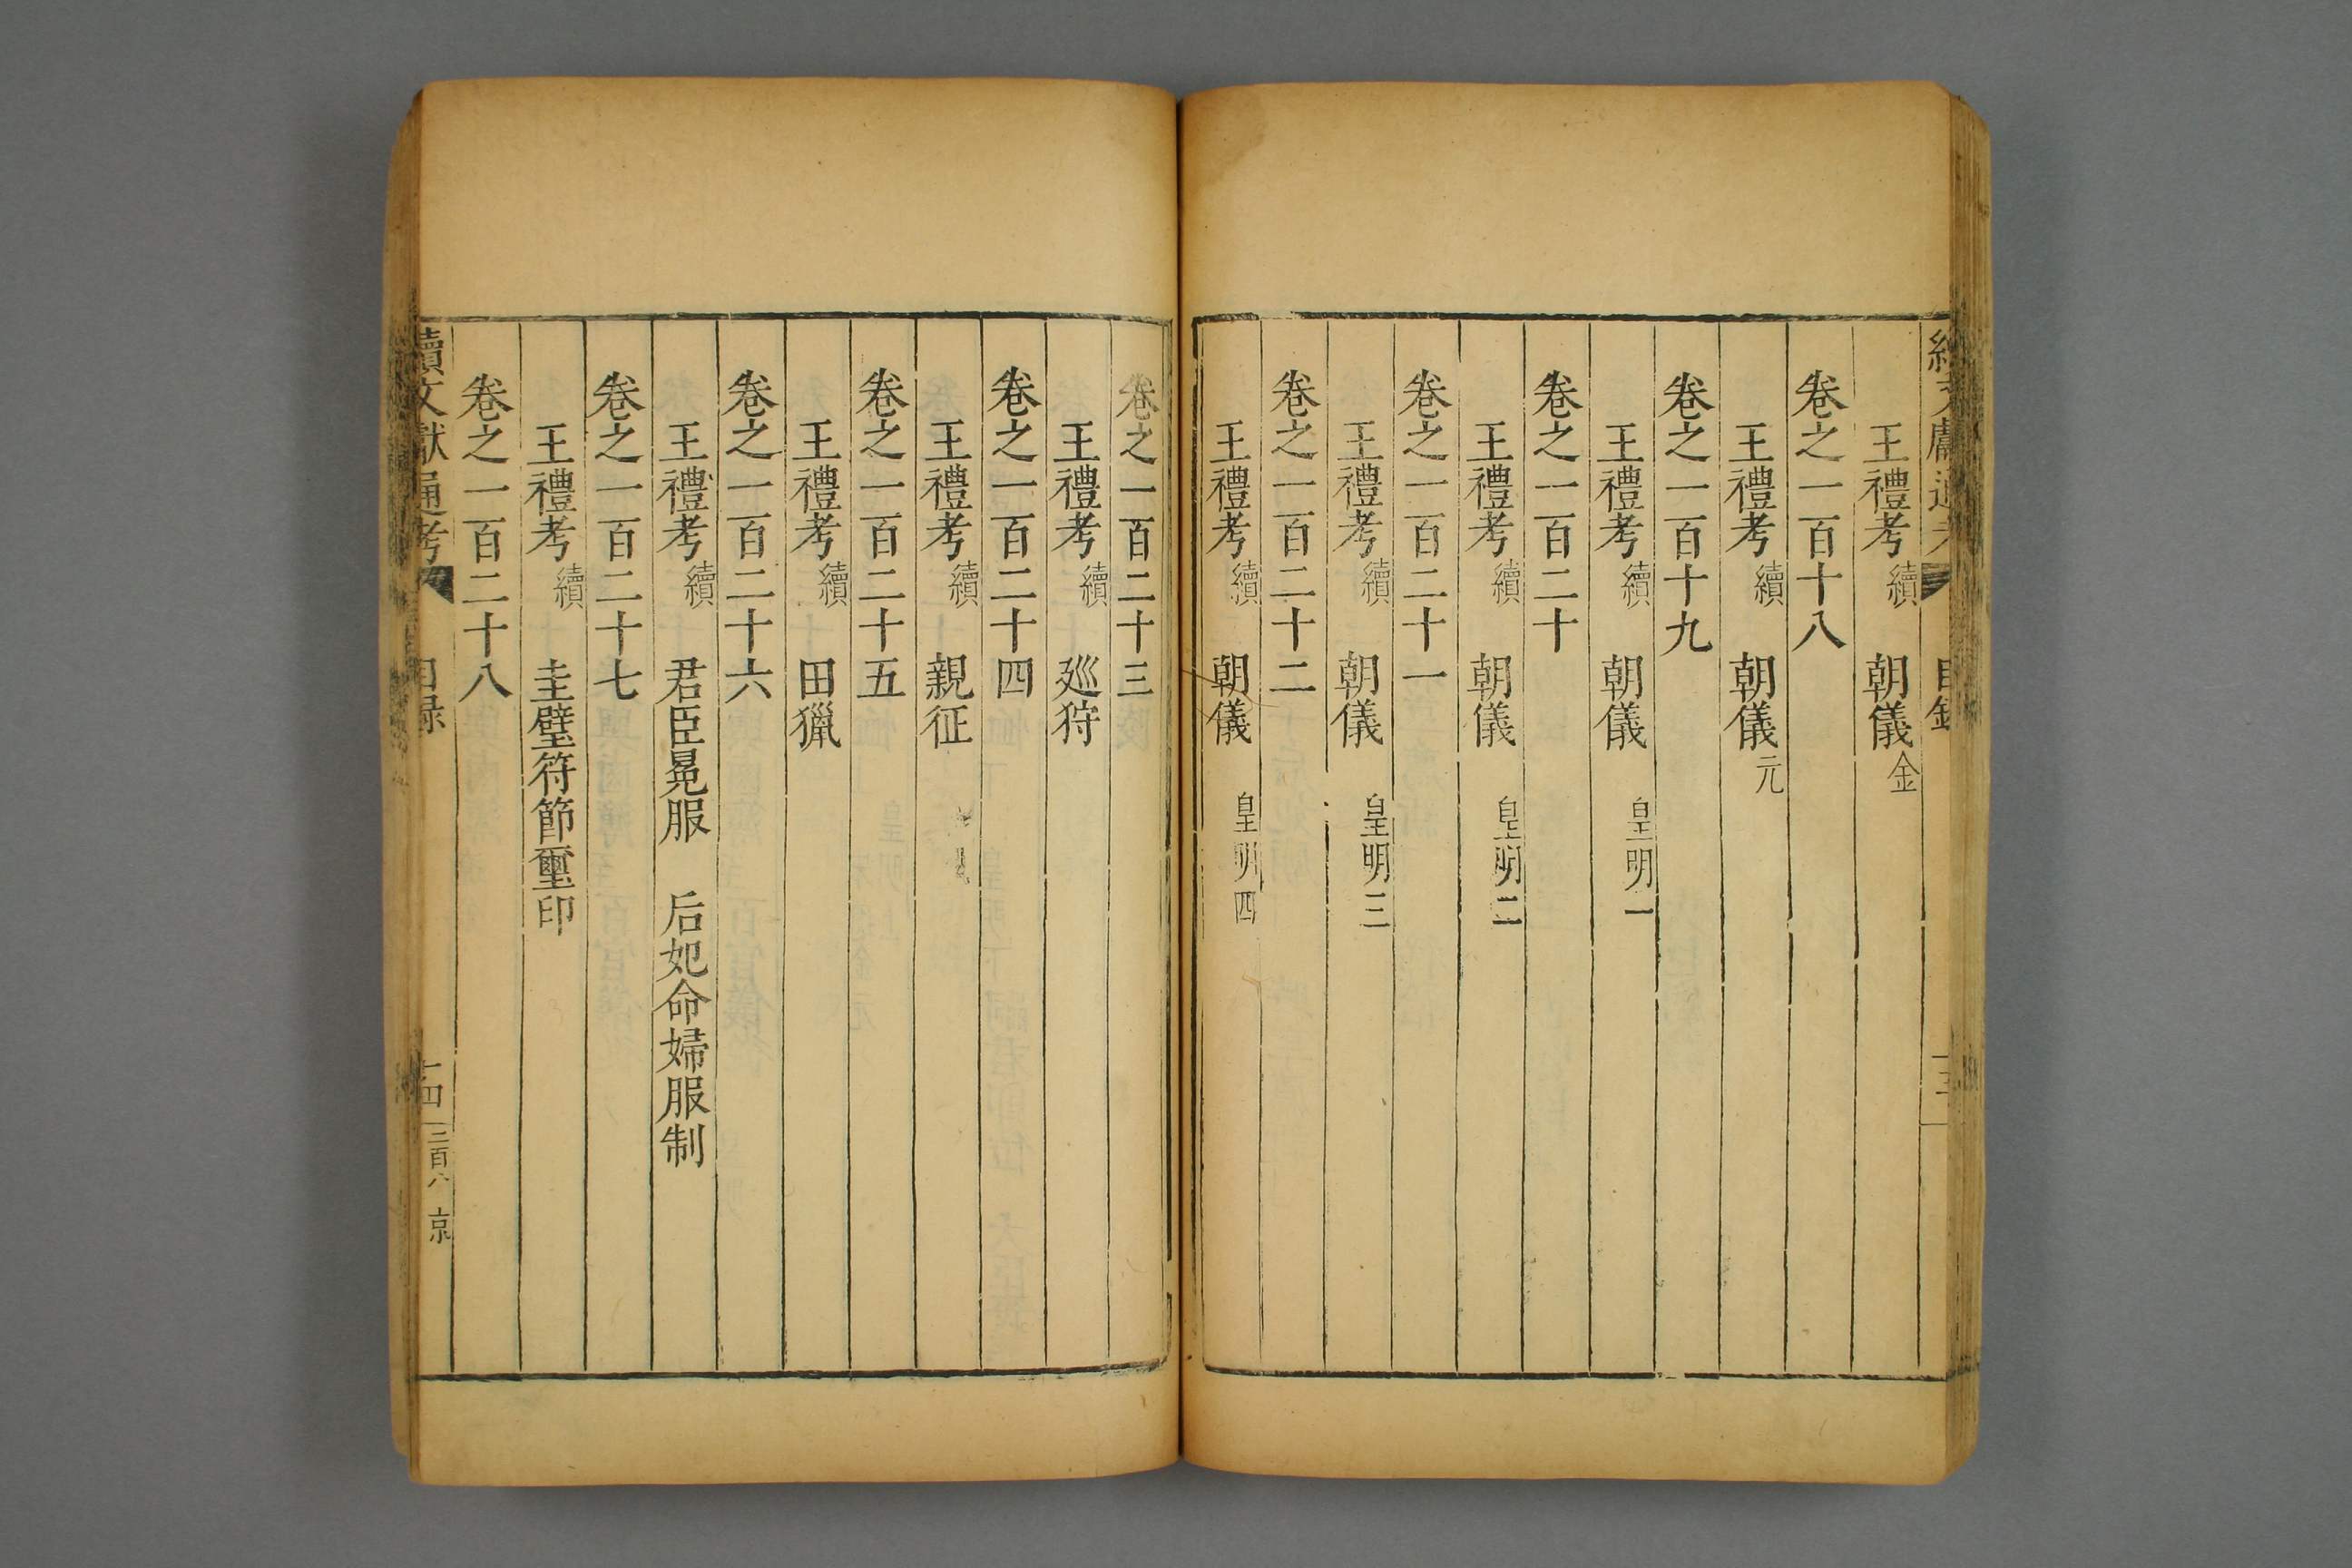 續文獻通考 目錄
王禮考 續 朝儀 金
卷之一百十八
王禮考 續 朝儀 元
卷之一百十九
王禮考 續 朝儀 皇明一
卷之一百二十
王禮考 續 朝儀 皇明二
卷之一百二十一
王禮考 續 朝儀 皇明三
卷之一百二十二
王禮考 續 朝儀 皇明四
卷之一百二十三
王禮考 續 廵狩
卷之一百二十四
王禮考 續 親征
卷之一百二十五
王禮考 續 田獵
卷之一百二十六
王禮考 續 君臣冕服 后妃命婦服制
卷之一百二十七
王禮考 續 圭璧符節璽印
卷之一百二十八
續文獻通考 目録 十四 三百六 京